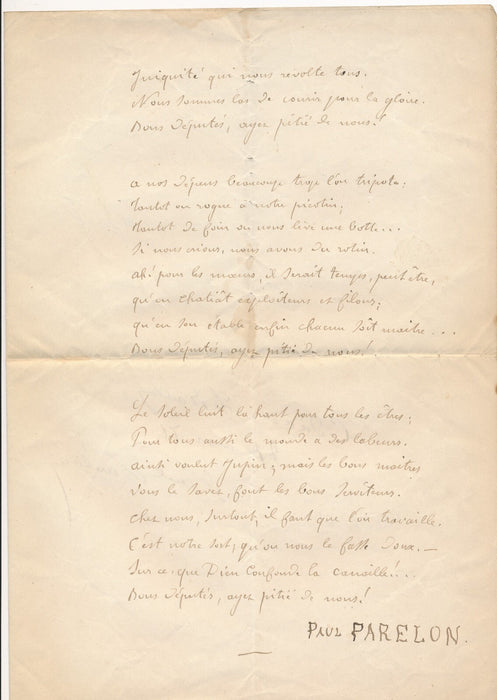 Iniquité qui nous révolte tous.
Nous sommes las de courir pour la gloire.
Bons députés, ayez pitié de nous!
A nos dépens beaucoup trop l'on tripote;
Tantôt on rogne à notre picotin;
Tantôt de foin on nous livre une botte...
Si nous crions, nous avons du rotin.
Ah! pour les mœurs, il serait temps, peut être,
qu'on chatiât exploiteurs et filous;
qu'en son étable enfin chacun soit maître...
Bons députés, ayez pitié de nous!
Le soleil luit là haut pour tous les êtres;
Pour tous aussi le monde a des labeurs.
Ainsi voulut Jupin; mais les bons maîtres
Vous le savez, font les bons serviteurs.
Chez nous, surtout, il faut que l'on travaille.
C'est notre sort; qu'on nous le fasse doux. —
Sur ce que Dieu confonde la canaille!...
Bons députés, ayez pitié de nous!
PAUL PARELON.